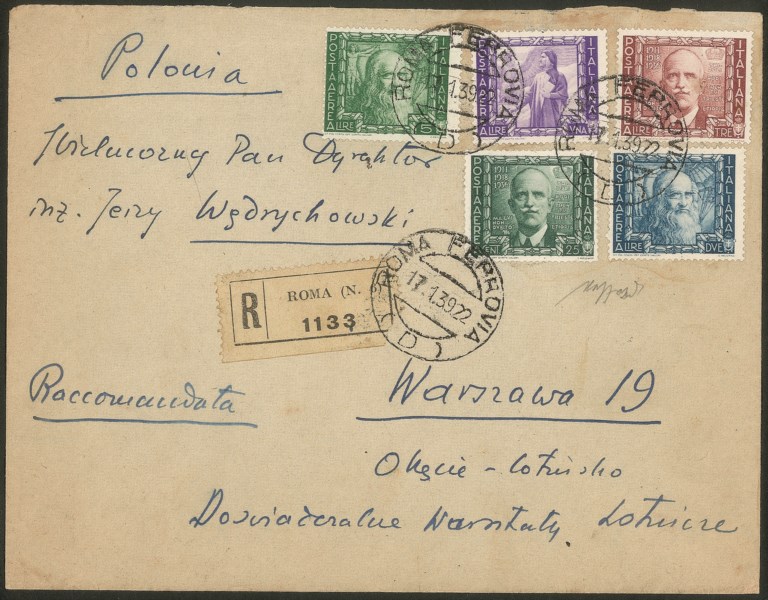 Polonia
POSTA AEREA ITALIANA LIRE 5
POSTA AEREA ITALIANA LIRE VNA
POSTA AEREA ITALIANA LIRE TRE
POSTA AEREA ITALIANA CENT 25
POSTA AEREA ITALIANA LIRE DVE
ROMA FERROVIA
1.39
D
ROMA FERROVIA
17.1.39.22
D
Wielmożny Pan Dyrektor
inż. Jerzy Wędrychowski
ROMA FERROVIA
17.1.39.22
D
R ROMA (N.
1133
Raccomandata
Warszawa 19
Okęcie - lotnisko
Doświadczalne Warsztaty Lotnicze